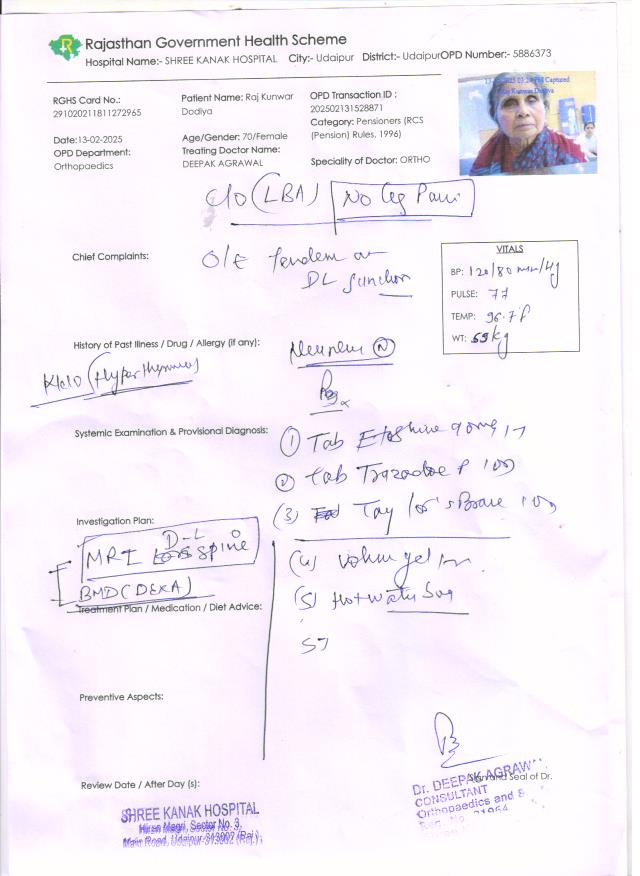 Rajasthan Government Health Scheme
Hospital Name:- SHREE KANAK HOSPITAL City:- Udaipur District:- UdaipurOPD Number:- 5886373
RGHS Card No.:
291020211811272965
Patient Name: Raj Kunwar
Dodiya
OPD Transaction ID :
202502131528871
Category: Pensioners (RCS
(Pension) Rules, 1996)
Date:13-02-2025
OPD Department:
Orthopaedics
Age/Gender: 70/Female
Treating Doctor Name:
DEEPAK AGRAWAL
Speciality of Doctor: ORTHO
Captured
Raj Kunwar Dodiya
C/O (LBA) No Leg Pain
Chief Complaints:
O/E
DL Junction
VITALS
BP: 120/80 mm/Hg
PULSE: 77
TEMP: 96.7 f
WT: 59 kg
History of Past Illness / Drug / Allergy (if any):
K/c/o
N
Rx
Systemic Examination & Provisional Diagnosis:
(1) Tab 90mg
(2) Tab P
(3) Taylor's Brace
Investigation Plan:
D-L
MRI Spine
BMD (DEXA)
(4) gel
(5) Hot water bag
Treatment Plan / Medication / Diet Advice:
Preventive Aspects:
Review Date / After Day (s):
Sign and Seal of Dr.
Dr. DEEPAK AGRAW
CONSULTANT
Orthopaedics and
SHREE KANAK HOSPITAL
Hiran Magri, Sector No. 3,
Main Road, Udaipur-313002 (Raj.)